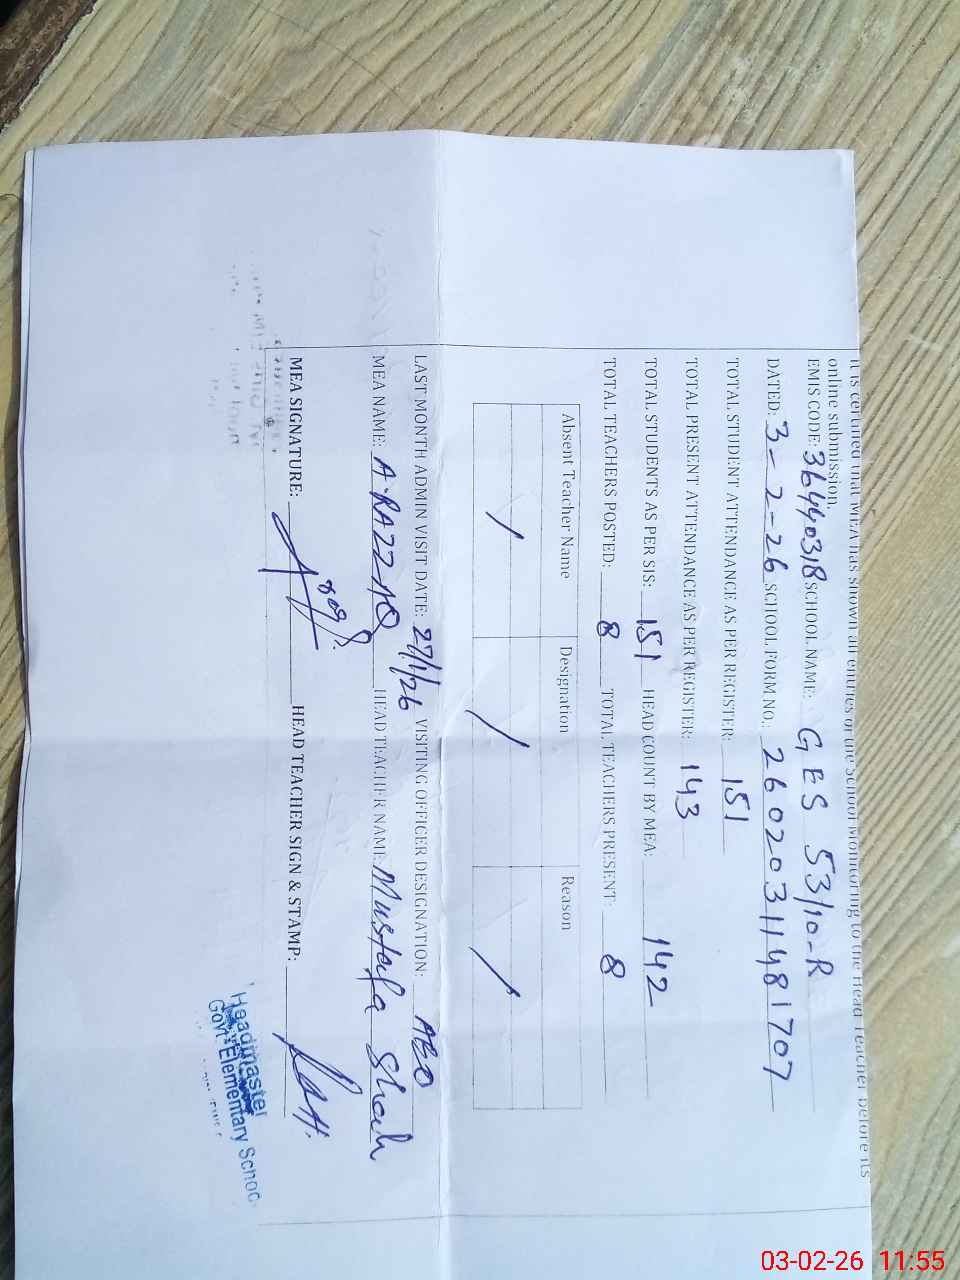 It is certified that MEA has shown all entries of the School Monitoring to the Head Teacher before its
online submission.
EMIS CODE: 36440318 SCHOOL NAME: GES 53/10-R
DATED: 3-2-26 SCHOOL FORM NO.: 2602031148 1707
TOTAL STUDENT ATTENDANCE AS PER REGISTER: 151
TOTAL PRESENT ATTENDANCE AS PER REGISTER: 143
TOTAL STUDENTS AS PER SIS: 151 HEAD COUNT BY MEA: 142
TOTAL TEACHERS POSTED: 8 TOTAL TEACHERS PRESENT: 8
Absent Teacher Name Designation Reason
/ / /
LAST MONTH ADMIN VISIT DATE: 27/1/26 VISITING OFFICER DESIGNATION: AEO
MEA NAME: A.RAZZAQ HEAD TEACHER NAME: Mustafa Shah
MEA SIGNATURE: HEAD TEACHER SIGN & STAMP:
Headmaster
Govt. Elementary School
03-02-26 11:55